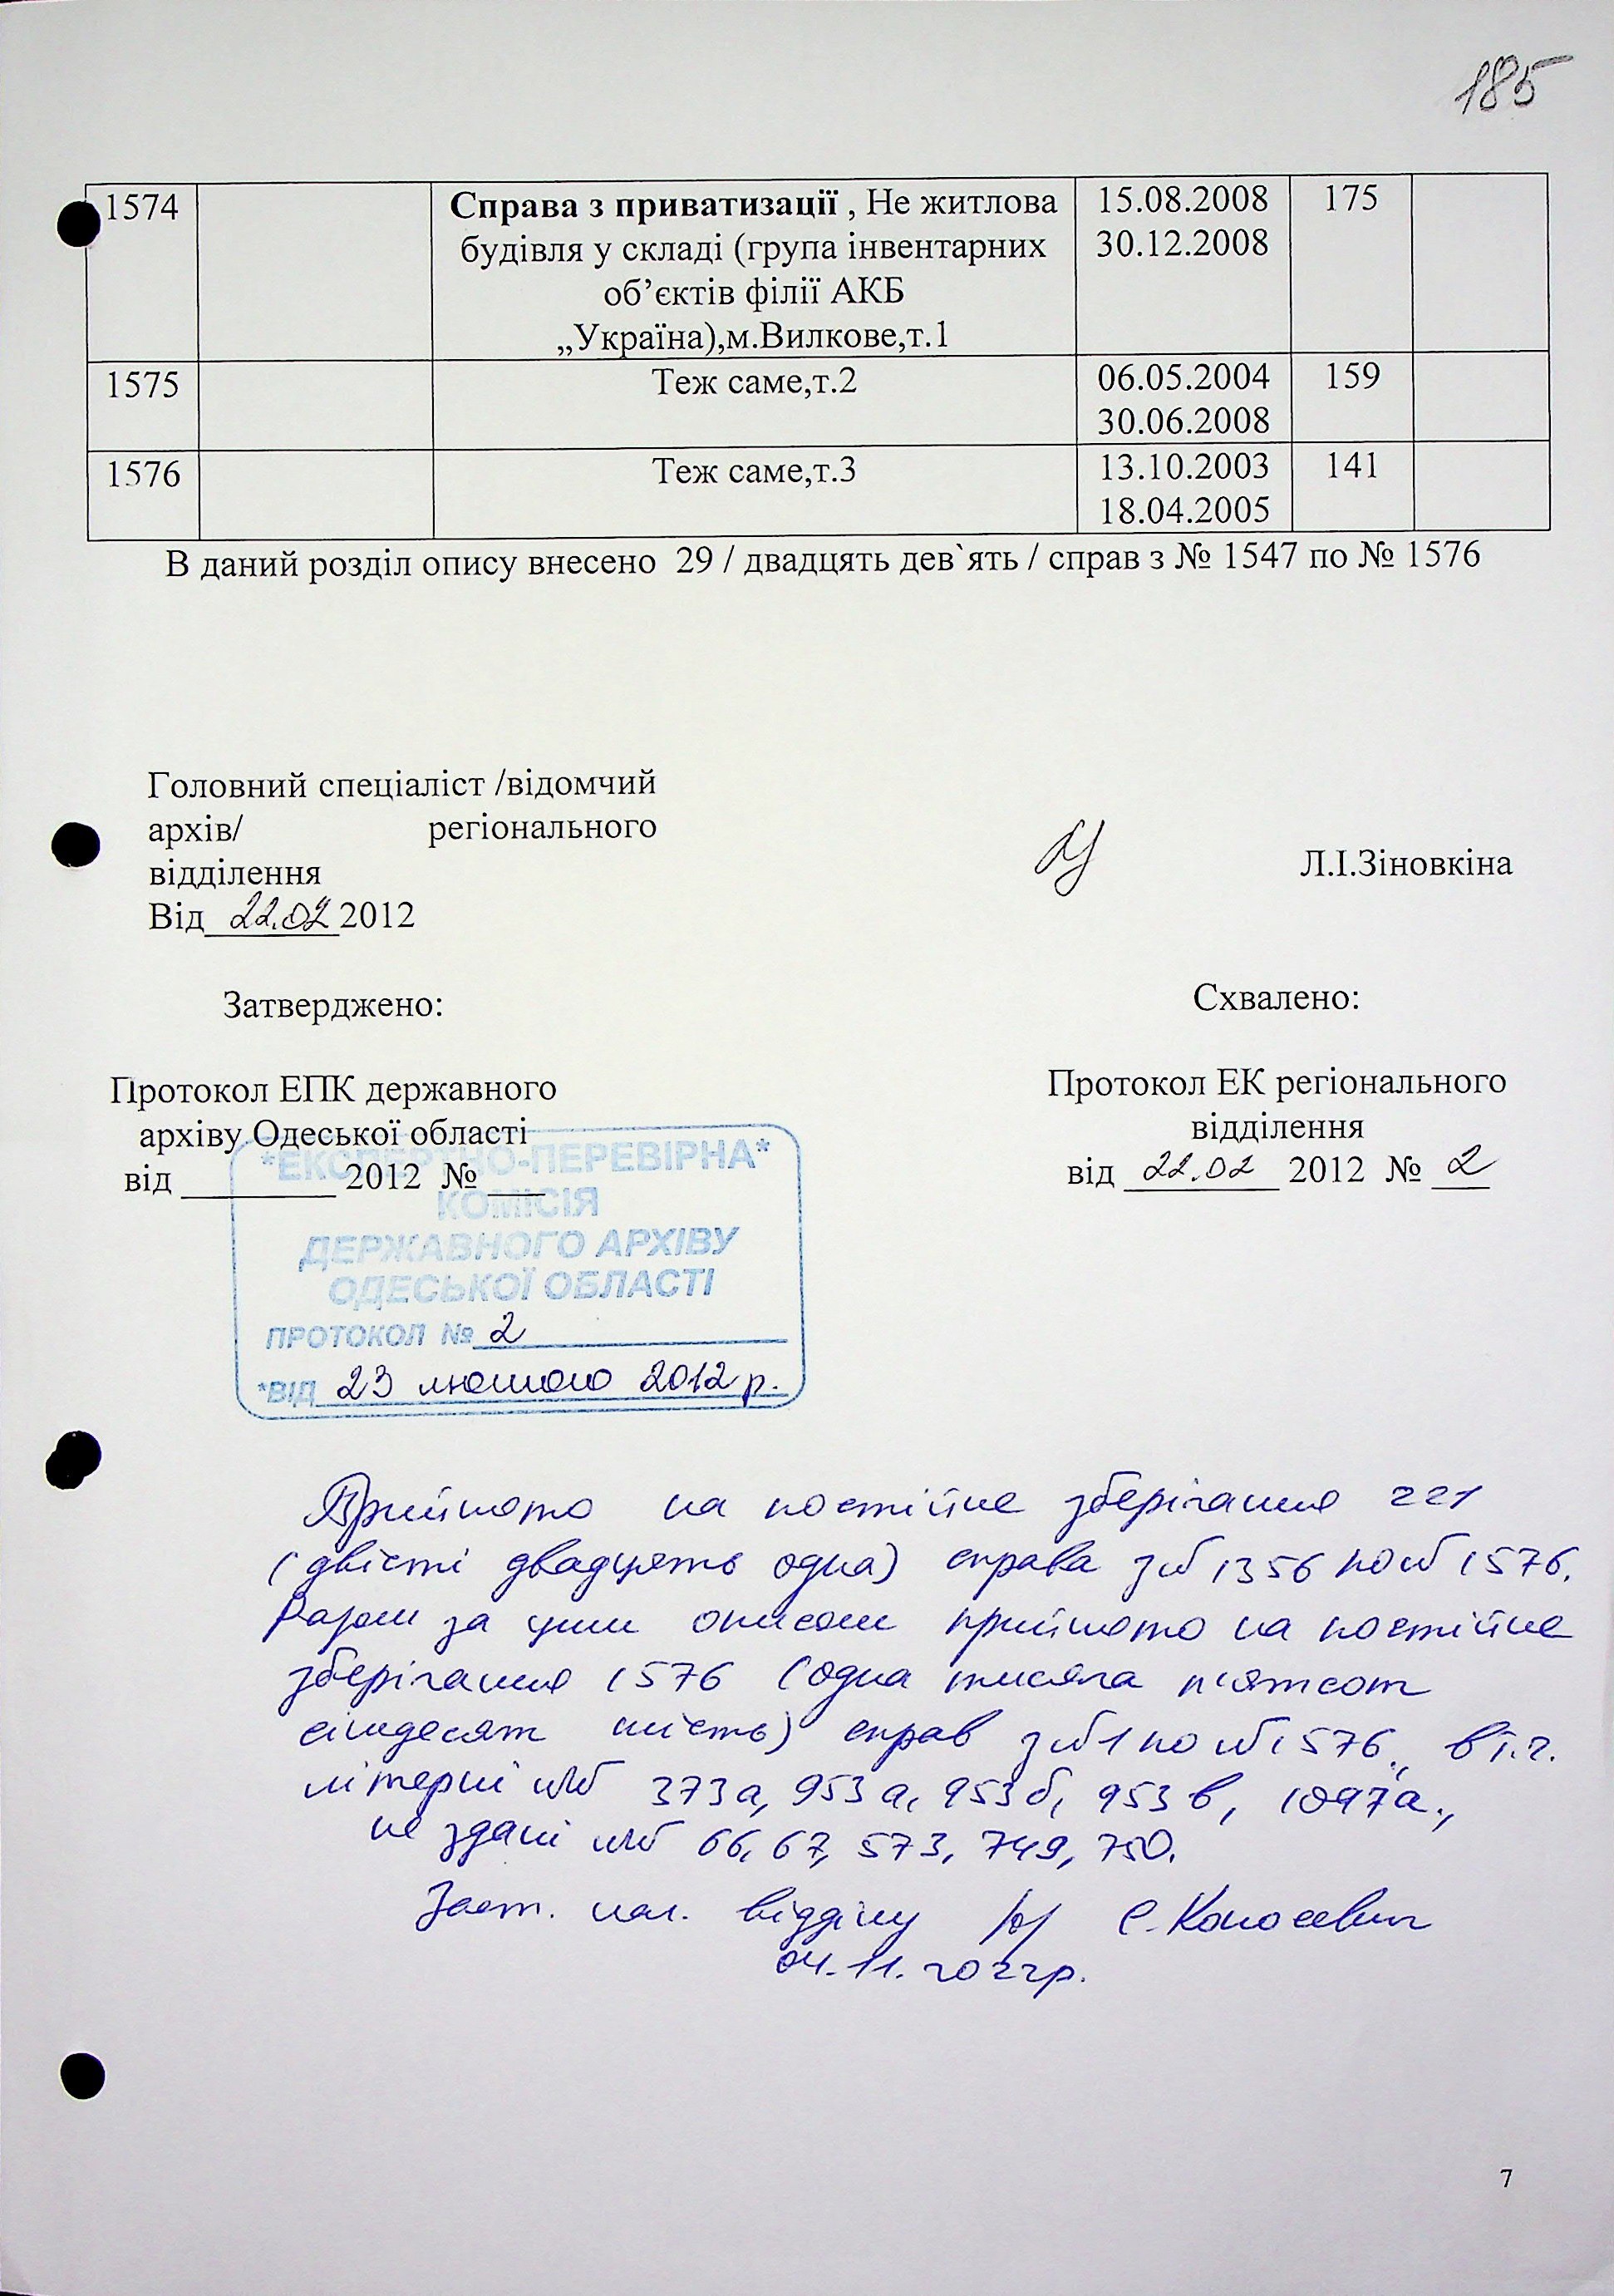 185
1574 Справа з приватизації , Не житлова 15.08.2008 175
будівля у складі (група інвентарних 30.12.2008
об’єктів філії АКБ
„Україна),м.Вилкове,т.1
1575 Теж саме,т.2 06.05.2004 159
30.06.2008
1576 Теж саме,т.3 13.10.2003 141
18.04.2005
В даний розділ опису внесено 29 / двадцять дев`ять / справ з № 1547 по № 1576
Головний спеціаліст /відомчий
архів/ регіонального
відділення Л.І.Зіновкіна
Від 22.02 2012
Затверджено: Схвалено:
Протокол ЕПК державного
архіву Одеської області
від ________ 2012 № ___
Протокол ЕК регіонального
відділення
від 22.02 2012 № 2
*ЕКСПЕРТНО-ПЕРЕВІРНА*
КОМІСІЯ
ДЕРЖАВНОГО АРХІВУ
ОДЕСЬКОЇ ОБЛАСТІ
ПРОТОКОЛ № 2
*ВІД 23 лютого 2012 р.
Прийнято на постійне зберігання 221
(двісті двадцять одна) справа з № 1356 по № 1576.
Разом за цим описом прийнято на постійне
зберігання 1576 (одна тисяча п'ятсот
сімдесят шість) справ з № 1 по № 1576, в т.ч.
літерні №№ 373а, 953а, 953б, 953в, 1097а.,
не здані №№ 66, 67, 573, 749, 750.
Заст. нач. відділу
04.11.2022р.
7